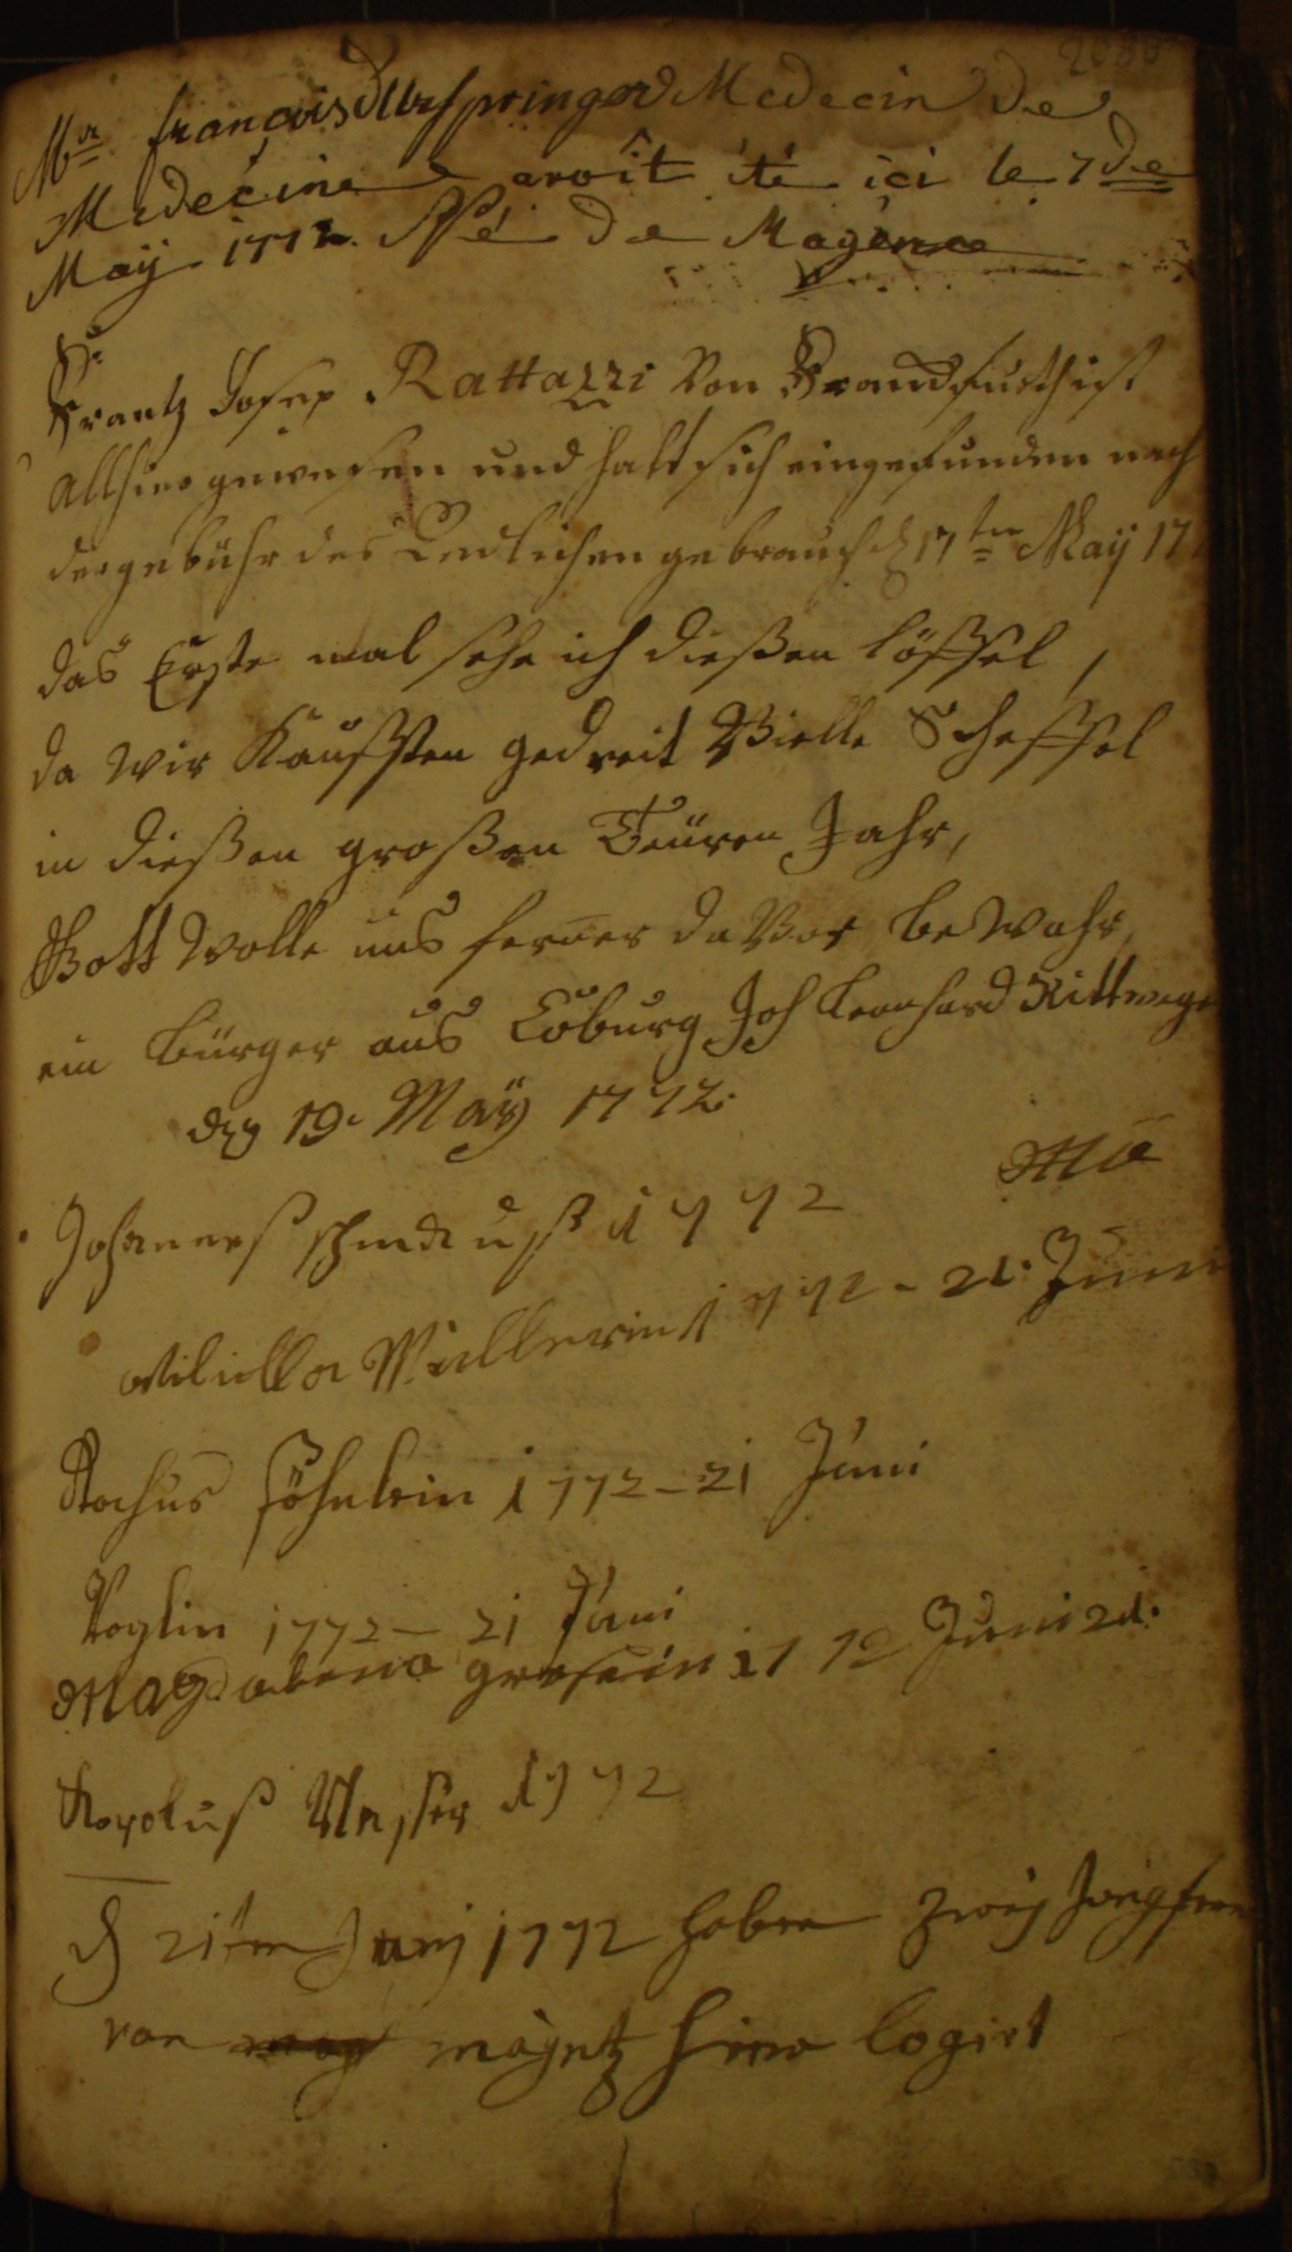 Mr. françois d'Urspringer Medecin de
Medecine avoit été ici le 7de
May 1772. Né de Mayence
Hr.
Frantz Josep Rattazzi Von Franckfurth ist
allhier gewesen und hatt sich eingefunden nach
der gebühr des Löblichen gebrauch d 17ten May 17
das Erste mal sehe ich dießen löffel,
da wir Kaufften gedreit Vielle Scheffel
in dießen großen Teüren Jahr,
Gott wolle uns ferner davor bewahr,
ein bürger aus Coburg Joh Leonhard Rittweger
den 19. Maÿ 1772.
Johannes 1772
Müllerin 1772 - 21. Juni
Rochus Höhnlein 1772 - 21 Juni
Voglin 1772 - 21 Juni
Magdalena 1772 Juni 21.
Karolus 1772
d 21ten Junj 1772 haben zweÿ Jungfern
von mayntz hier logirt